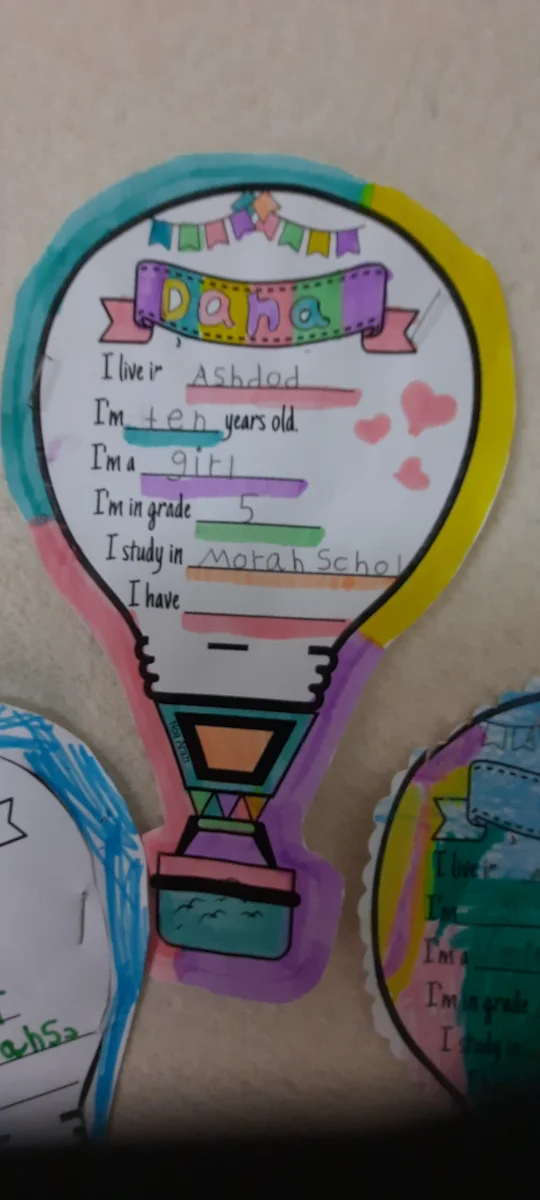 Dana
I live in Ashdod
I'm ten years old.
I'm a girl
I'm in grade 5
I study in Morah Schol
I have
I live in
I'm
I'm a
I'm in grade
I study in